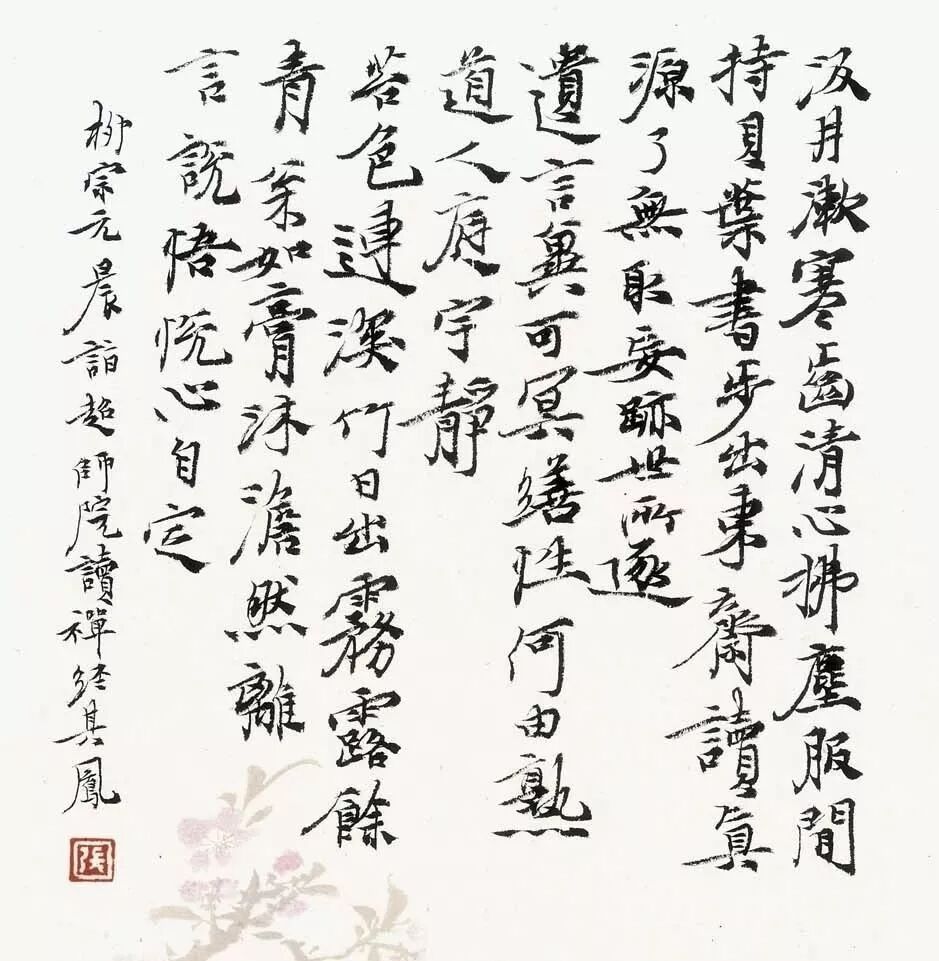 汲井漱寒齒清心拂塵服閒
持貝葉書步出東齋讀真
源了無取妄跡世所逐
遺言冀可冥繕性何由熟
道人庭宇靜
苔色連深竹日出霧露餘
青枀如膏沐澹然離
言說悟悅心自定
柳宗元晨詣超師院讀禪經其鳳
張